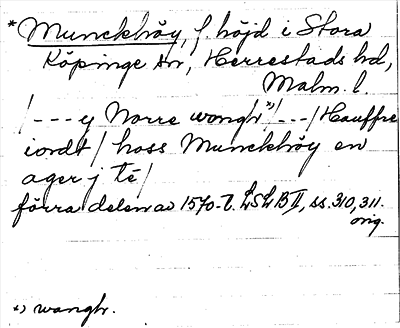 * Munckhöy, f. höjd i Stora
Köpinge sn, Herrestads hd,
Malm. l.
/---y Norre wongh*)/---/ Hauffre
iordt / hoss Munckhöy en
ager j té/
förra delen av 1570-t. LSLB II, ss. 310, 311.
orig.
*) wanghr.